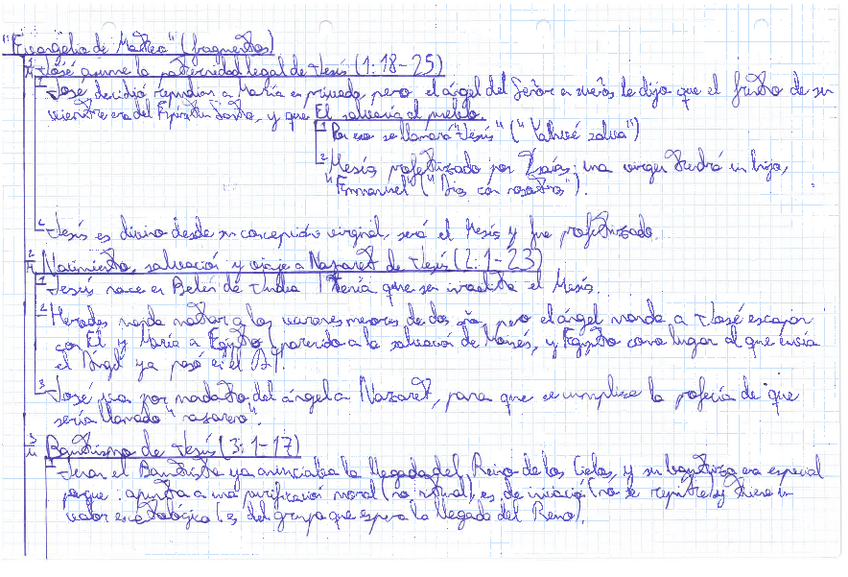 "Evangelio de Mateo" (fragmentos)
1 José asume la paternidad legal de Jesús (1:18-25)
1 José decidió repudiar a María en privado, pero el ángel del Señor en sueños le dijo que el fruto de su
vientre era del Espíritu Santo, y que El salvaría al pueblo.
1 Por eso se llamará "Jesús" ("Yahvé salva")
2 Mesías profetizado por Isaías: una virgen tendrá un hijo,
"Emmanuel" ("Dios con nosotros").
2 Jesús es divino desde su concepción virginal, será el Mesías y fue profetizado.
2 Nacimiento, salvación y viaje a Nazaret de Jesús (2:1-23)
1 Jesús nace en Belén de Judea tenía que ser israelita el Mesías.
2 Herodes manda matar a los varones menores de dos años, pero el ángel manda a José escapar
con El y María a Egipto (parecido a la salvación de Moisés, y Egipto como lugar al que envía
el Ángel ya pasó en el AT).
3 José va por mandato del ángel a Nazaret, para que se cumpliese la profecía de que
sería llamado "nazareno".
3 Bautismo de Jesús (3:1-17)
1 Juan el Bautista ya anunciaba la llegada del Reino de los Cielos, y su bautismo era especial
porque: apunta a una purificación moral (no ritual), es de iniciación (no se repite) y tiene un
valor escatológico (es del grupo que espera la llegada del Reino).